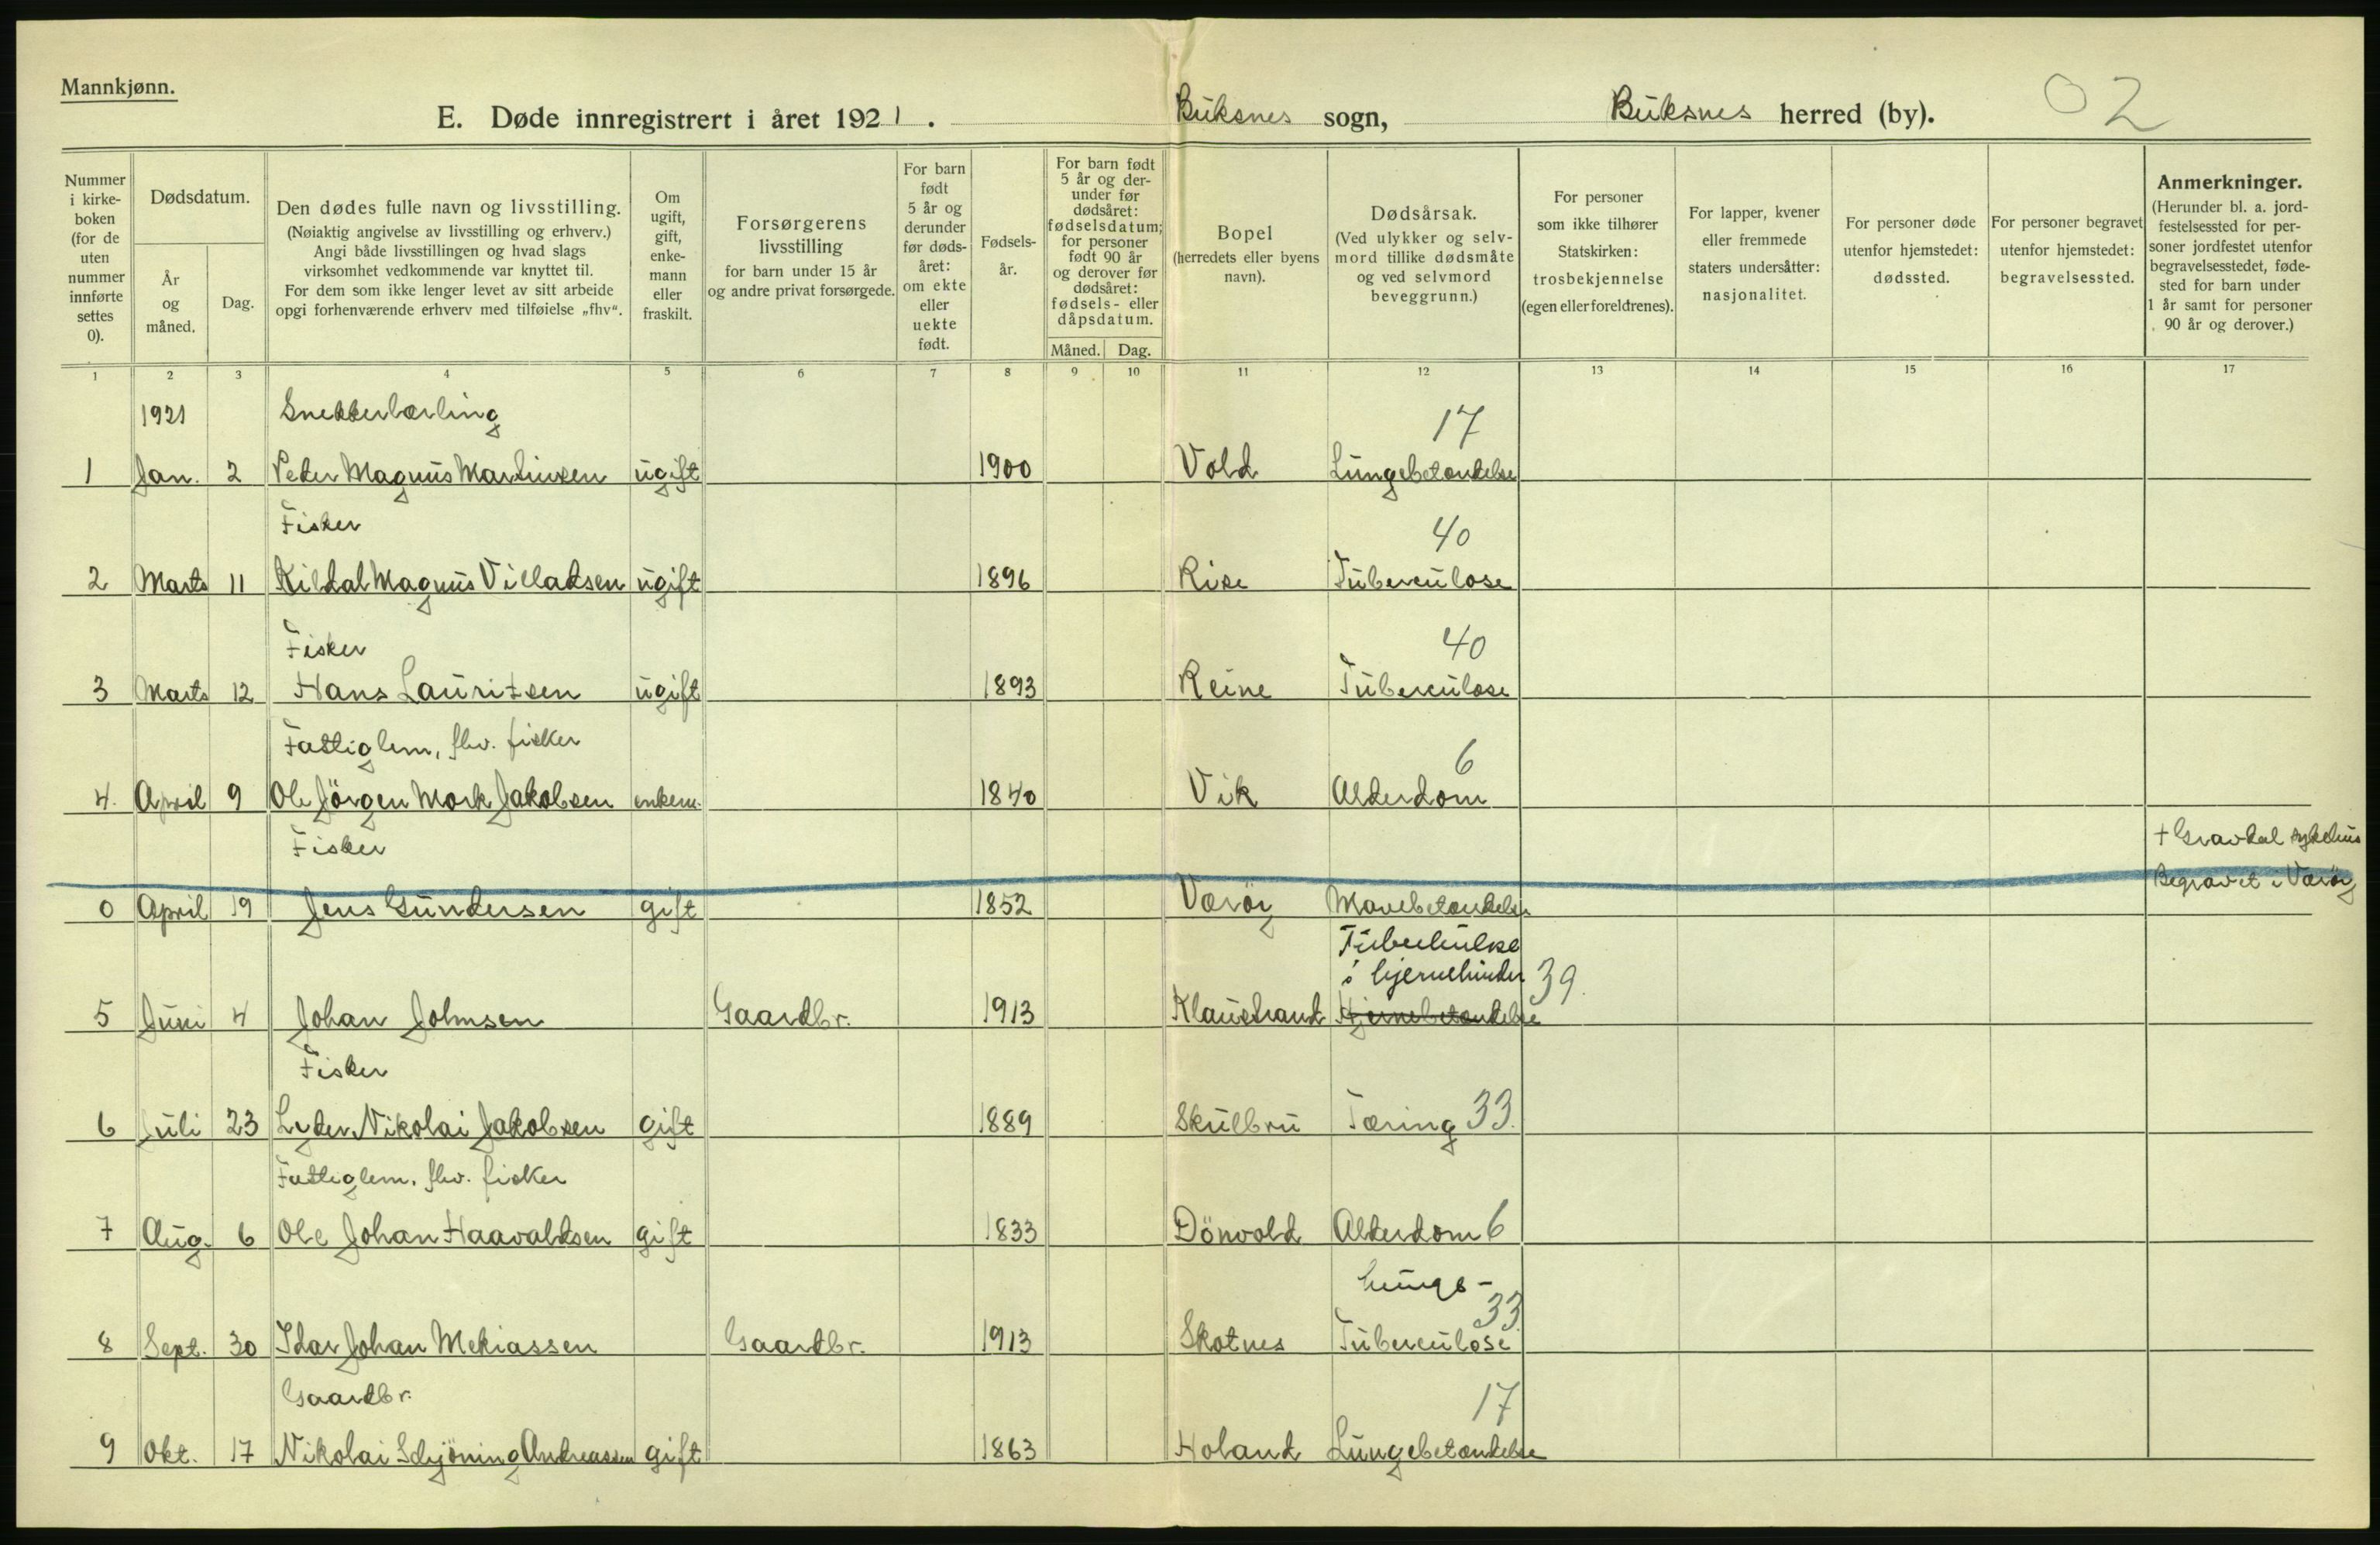 Mannkjønn.
E. Døde innregistrert i året 1921. Buksnes sogn, Buksnes herred (by). 02
Nummer i kirke-boken (for de uten nummer innførte settes 0).
Dødsdatum.
År og måned.
Dag.
Den dødes fulle navn og livsstilling.
(Nøiaktig angivelse av livsstilling og erhverv.)
Angi både livsstillingen og hvad slags
virksomhet vedkommende var knyttet til.
For dem som ikke lenger levet av sitt arbeide
opgi forhenværende erhverv med tilføielse „fhv“.
Om ugift, gift, enke-mann eller fraskilt.
Forsørgerens
livsstilling
for barn under 15 år
og andre privat forsørgede.
For barn født 5 år og derunder før døds-året: om ekte eller uekte født.
Fødsels-år.
For barn født 5 år og der-under før dødsåret: fødselsdatum; for personer født 90 år og derover før dødsåret: fødsels- eller dåpsdatum.
Måned. Dag.
Bopel
(herredets eller byens
navn).
Dødsårsak.
(Ved ulykker og selv-
mord tillike dødsmåte
og ved selvmord
beveggrunn.)
For personer
som ikke tilhører
Statskirken:
trosbekjennelse
(egen eller foreldrenes).
For lapper, kvener
eller fremmede
staters undersåtter:
nasjonalitet.
For personer døde
utenfor hjemstedet:
dødssted.
For personer begravet
utenfor hjemstedet:
begravelsessted.
Anmerkninger.
(Herunder bl. a. jord-
festelsessted for per-
soner jordfestet utenfor
begravelsesstedet, føde-
sted for barn under
1 år samt for personer
90 år og derover.)
1 2 3 4 5 6 7 8 9 10 11 12 13 14 15 16 17
1921 Snekkerlærling 17
1 Jan. 2 Peder Magnus Martinsen ugift 1900 Vold Lungebetændelse
Fisker 40
2 Marts 11 Kildal Magnus Villadsen ugift 1896 Rise Tuberculose
Fisker 40
3 Marts 12 Hans Lauritsen ugift 1893 Reine Tuberculose
Fattiglem, fhv. fisker 6
4. April 9 Ole Jörgen Mork Jakobsen enkem. 1840 Vik Alderdom
Fisker + Gravdal sykehus
Begravet i Værøy
0 April 19 Jens Gundersen gift 1852 Værøy Mavebetændelse
Tuberkulose
i hjernehinder 39.
5 Juni 4 Johan Johnsen Gaardbr. 1913 Klaustrand Hjernebetændelse
Fisker
6 Juli 23 Lyder Nikolai Jakobsen gift 1889 Skulbru Tæring 33.
Fattiglem, fhv. fisker
7 Aug. 6 Ole Johan Haavaldsen gift 1833 Dönvold Alderdom 6
Lunge-
33
8 Sept. 30 Idar Johan Mekiassen Gaardbr. 1913 Skotnes Tuberculose
Gaardbr. 17
9 Okt. 17 Nikolai Schjöning Andreassen gift 1863 Holand Lungebetændelse